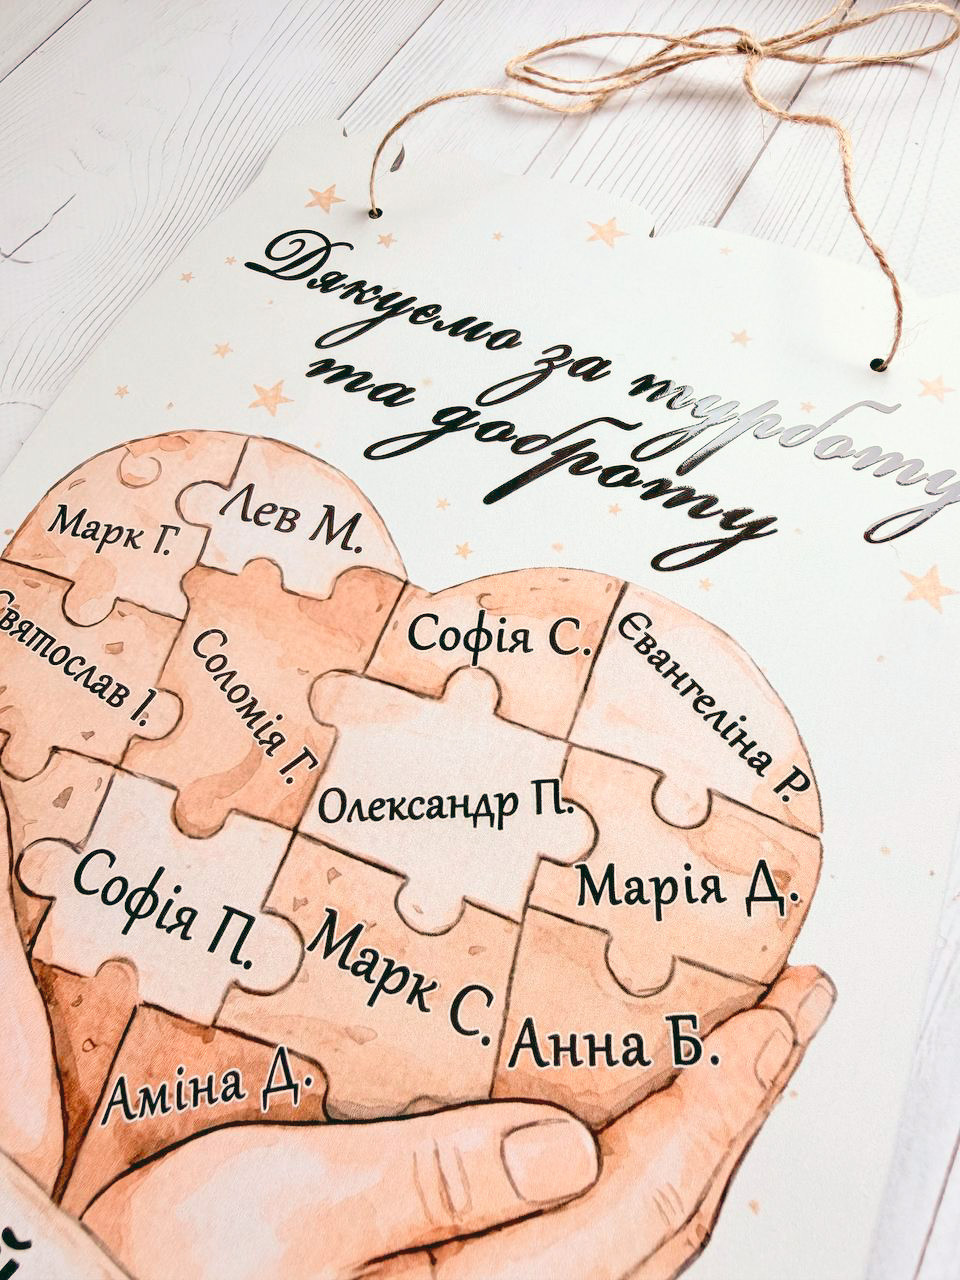 Дякуємо за турботу
та доброту
Марк Г.
Лев М.
Святослав І.
Соломія Г.
Софія С.
Євангеліна Р.
Олександр П.
Марія Д.
Софія П.
Марк С.
Анна Б.
Аміна Д.